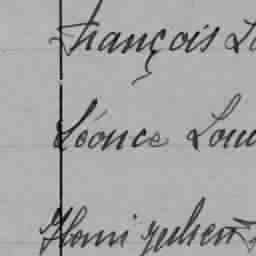 François
Léonce Lou
Henri Julien